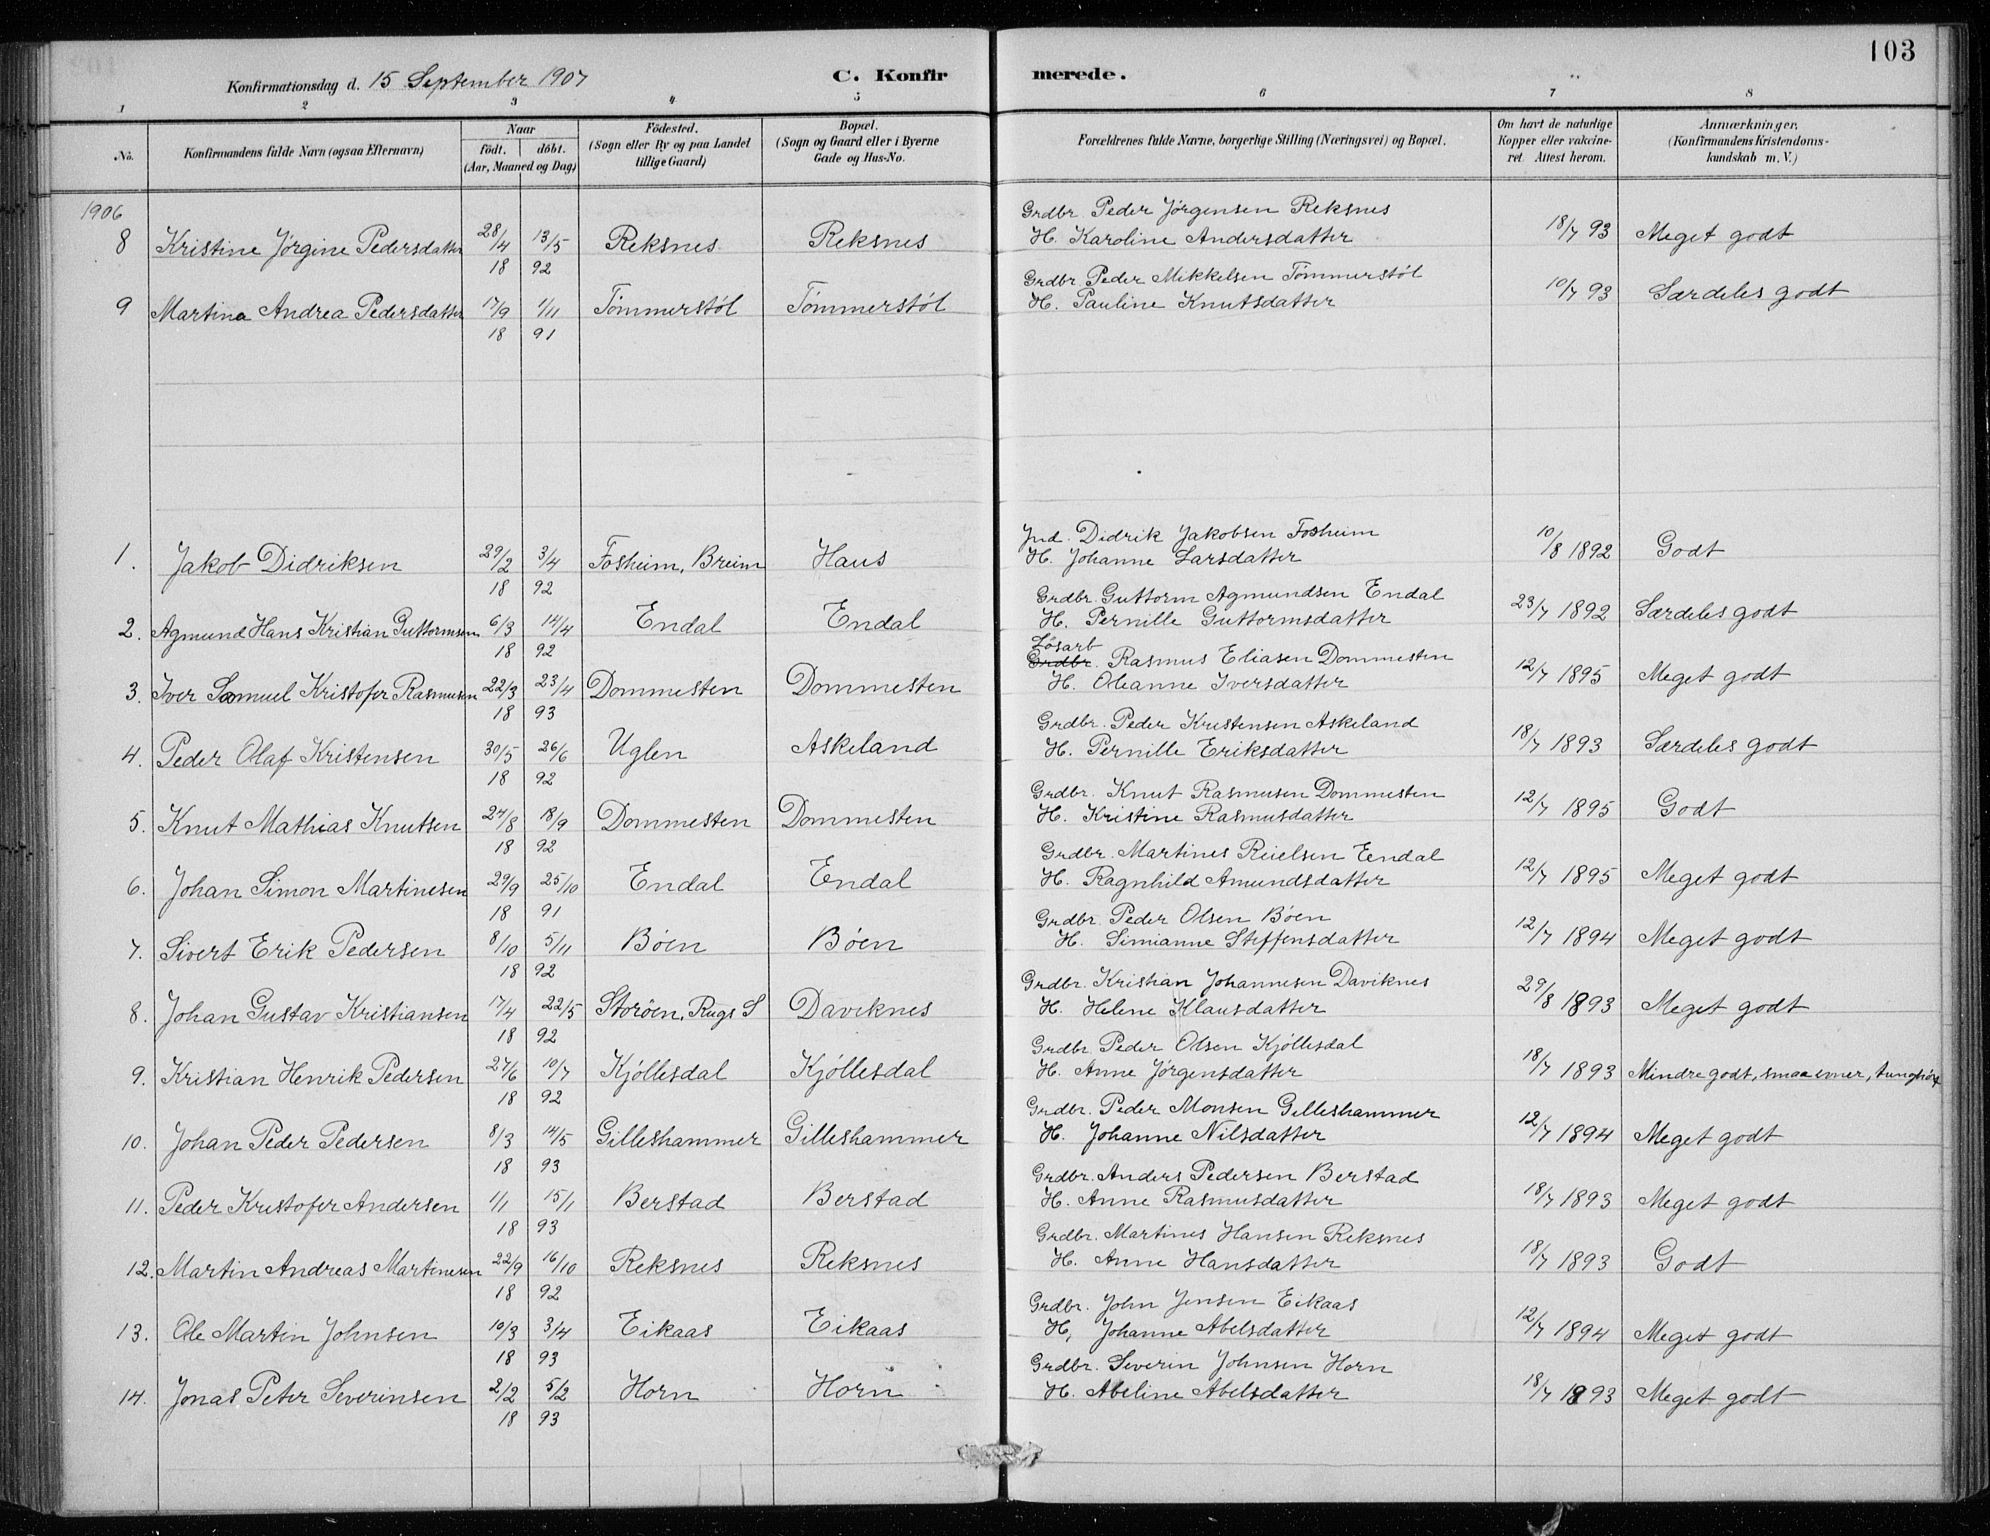 103
Konfirmationsdag d. 15 September 1907
C. Konfirmerede.
1 2 3 4 5 6 7 8
No. Konfirmandens fulde Navn (ogsaa Efternavn) Naar födt. döbt. (Aar, Maaned og Dag) Födested. (Sogn eller By og paa Landet tillige Gaard) Bopæl. (Sogn og Gaard eller i Byerne Gade og Hus-No. Forældrenes fulde Navne, borgerlige Stilling (Næringsvei) og Bopæl. Om havt de naturlige Kopper eller vakcineret. Attest herom. Anmærkninger. (Konfirmandens Kristendomskundskab m. V.)
1906
8 Kristine Jørgine Pedersdatter 28/4 13/5 1892 Reksnes Reksnes Grdbr. Peder Jørgensen Reksnes
H. Karoline Andersdatter 18/7 93 Meget godt
9 Martina Andrea Pedersdatter 17/9 1/11 1891 Tömmerstöl Tömmerstöl Grdbr. Peder Mikkelsen Tömmerstöl
H. Pauline Knutsdatter 10/7 93 Særdeles godt
1. Jakob Didriksen 29/2 3/4 1892 Fosheim, Breim Haus Ind. Didrik Jakobsen Fosheim
H. Johanne Larsdatter 10/8 1892 Godt
2. Agmund Hans Kristian Guttormsen 6/3 14/4 1892 Endal Endal Grdbr. Guttorm Agmundsen Endal
H. Pernille Guttormsdatter 23/7 1892 Særdeles godt
3. Iver Samuel Kristofer Rasmusen 22/3 23/4 1893 Dommesten Dommesten Løsarb Grdbr. Rasmus Eliasen Dommesten
H. Oleanne Iversdatter 12/7 1895 Meget godt
4. Peder Olaf Kristensen 30/5 26/6 1892 Uglen Askeland Grdbr. Peder Kristensen Askeland
H. Pernille Eriksdatter 18/7 1893 Særdeles godt
5. Knut Mathias Knutsen 24/8 18/9 1892 Dommesten Dommesten Grdbr. Knut Rasmusen Dommesten
H. Kristine Rasmusdatter 12/7 1895 Godt
6. Johan Simon Martinesen 29/9 25/10 1891 Endal Endal Grdbr. Martines Reielsen Eendal
H. Ragnhild Amundsdatter 12/7 1895 Meget godt
7. Sivert Erik Pedersen 8/10 5/11 1892 Böen Böen Grdbr. Peder Olsen Böen
H. Simianne Steffensdatter 12/7 1894 Meget godt
8. Johan Gustav Kristiansen 17/4 22/5 1892 Storöen, Rugs S Daviknes Grdbr. Kristian Johannesen Daviknes
H. Helene Klausdatter 29/8 1893 Meget godt
9. Kristian Henrik Pedersen 27/6 10/7 1892 Kjöllesdal Kjöllesdal Grdbr. Peder Olsen Kjöllesdal
H. Anne Jørgensdatter 18/7 1893 Mindre godt, smaa evner, tunghört
10. Johan Peder Pedersen 8/3 14/5 1893 Gilleshammer Gilleshammer Grdbr. Peder Monsen Gilleshammer
H. Johanne Nilsdatter 12/7 1894 Meget godt
11. Peder Kristofer Andersen 1/1 15/1 1893 Berstad Berstad Grdbr. Anders Pedersen Berstad
H. Anne Rasmusdatter 18/7 1893 Meget godt
12. Martin Andreas Martinesen 22/9 16/10 1892 Reksnes Reksnes Grdbr. Martines Hansen Reksnes
H. Anne Hansdatter 18/7 1893 Godt
13. Ole Martin Johnsen 10/3 3/4 1893 Eikaas Eikaas Grdbr. John Jensen Eikaas
H, Johanne Abelsdatter 12/7 1894 Meget godt
14. Jonas Peter Severinsen 2/2 5/2 1893 Horn Horn Grdbr. Severin Johnsen Horn
H. Abeline Abelsdatter 18/7 1893 Meget godt